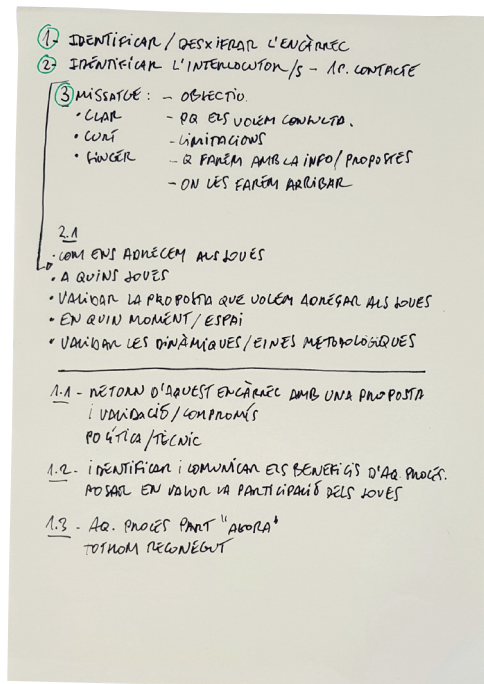 1- IDENTIFICAR/DESXIFRAR L'ENCÀRREC
2- IDENTIFICAR L'INTERLOCUTOR/S - 1R. CONTACTE
3 MISSATGE: - OBJECTIU.
• CLAR - PQ ELS VOLEM CONSULTA.
• CURT - LIMITACIONS
• SINCER - Q FAREM AMB LA INFO/PROPOSTES
- ON LES FAREM ARRIBAR
2.1
• COM ENS ADRECEM ALS JOVES
• A QUINS JOVES
• VALIDAR LA PROPOSTA QUE VOLEM ADREÇAR ALS JOVES
• EN QUIN MOMENT/ESPAI
• VALIDAR LES DINÀMIQUES/EINES METODOLÒGIQUES
1.1 - RETORN D'AQUEST ENCÀRREC AMB UNA PROPOSTA
I VALIDACIÓ/COMPROMÍS
POLÍTICA/TÈCNIC
1.2.- IDENTIFICAR I COMUNICAR ELS BENEFICIS D'AQ. PROCÉS.
POSAR EN VALOR LA PARTICIPACIÓ DELS JOVES
1.3 - AQ. PROCÉS PART "ÀGORA"
TOTHOM RECONEGUT